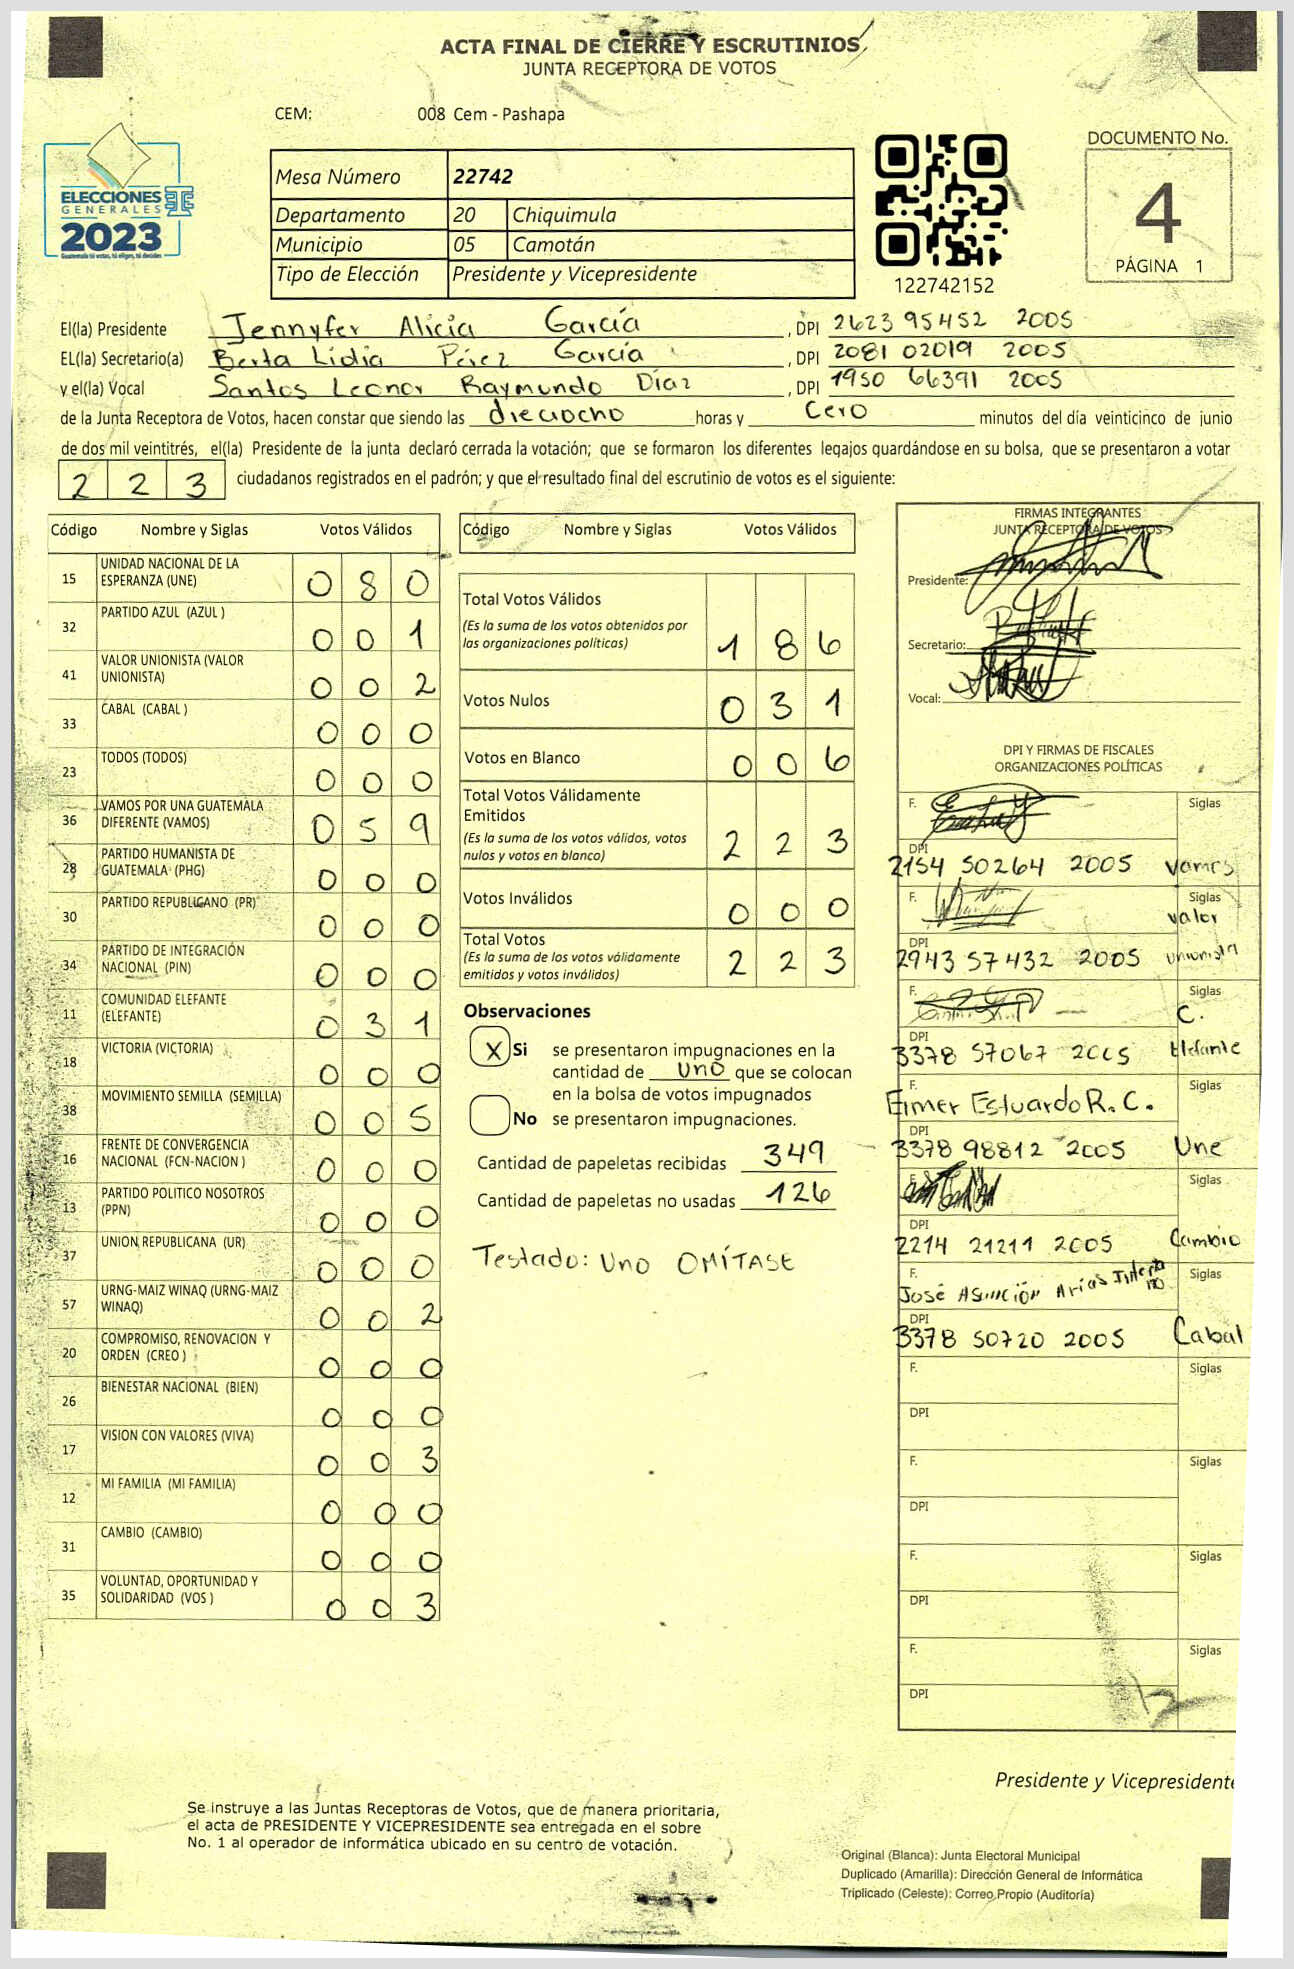 ACTA FINAL DE CIERRE Y ESCRUTINIOS
JUNTA RECEPTORA DE VOTOS
CEM: 008 Cem - Pashapa
ELECCIONES
GENERALES
2023
Guatemala tú votas, tú eliges, tú decides
Mesa Número 22742
Departamento 20 Chiquimula
Municipio 05 Camotán
Tipo de Elección Presidente y Vicepresidente
122742152
DOCUMENTO No.
4
PÁGINA 1
El(la) Presidente Jennyfer Alicia García , DPI 2623 95452 2005
EL(la) Secretario(a) Berta Lidia Pérez García , DPI 2081 02019 2005
y el(la) Vocal Santos Leonor Raymundo Díaz , DPI 1950 66391 2005
de la Junta Receptora de Votos, hacen constar que siendo las dieciocho horas y cero minutos del día veinticinco de junio
de dos mil veintitrés, el(la) Presidente de la junta declaró cerrada la votación; que se formaron los diferentes legajos guardándose en su bolsa, que se presentaron a votar
2 2 3 ciudadanos registrados en el padrón; y que el resultado final del escrutinio de votos es el siguiente:
Código Nombre y Siglas Votos Válidos
15 UNIDAD NACIONAL DE LA
ESPERANZA (UNE) 0 8 0
32 PARTIDO AZUL (AZUL ) 0 0 1
41 VALOR UNIONISTA (VALOR
UNIONISTA) 0 0 2
33 CABAL (CABAL ) 0 0 0
23 TODOS (TODOS) 0 0 0
36 VAMOS POR UNA GUATEMALA
DIFERENTE (VAMOS) 0 5 9
28 PARTIDO HUMANISTA DE
GUATEMALA (PHG) 0 0 0
30 PARTIDO REPUBLICANO (PR) 0 0 0
34 PARTIDO DE INTEGRACIÓN
NACIONAL (PIN) 0 0 0
11 COMUNIDAD ELEFANTE
(ELEFANTE) 0 3 1
18 VICTORIA (VICTORIA) 0 0 0
38 MOVIMIENTO SEMILLA (SEMILLA) 0 0 5
16 FRENTE DE CONVERGENCIA
NACIONAL (FCN-NACION ) 0 0 0
13 PARTIDO POLITICO NOSOTROS
(PPN) 0 0 0
37 UNION REPUBLICANA (UR) 0 0 0
57 URNG-MAIZ WINAQ (URNG-MAIZ
WINAQ) 0 0 2
20 COMPROMISO, RENOVACION Y
ORDEN (CREO ) 0 0 0
26 BIENESTAR NACIONAL (BIEN) 0 0 0
17 VISION CON VALORES (VIVA) 0 0 3
12 MI FAMILIA (MI FAMILIA) 0 0 0
31 CAMBIO (CAMBIO) 0 0 0
35 VOLUNTAD, OPORTUNIDAD Y
SOLIDARIDAD (VOS ) 0 0 3
Código Nombre y Siglas Votos Válidos
Total Votos Válidos
(Es la suma de los votos obtenidos por
las organizaciones políticas) 1 8 6
Votos Nulos 0 3 1
Votos en Blanco 0 0 6
Total Votos Válidamente
Emitidos
(Es la suma de los votos válidos, votos
nulos y votos en blanco) 2 2 3
Votos Inválidos 0 0 0
Total Votos
(Es la suma de los votos válidamente
emitidos y votos inválidos) 2 2 3
Observaciones
X Si se presentaron impugnaciones en la
cantidad de uno que se colocan
en la bolsa de votos impugnados
No se presentaron impugnaciones.
Cantidad de papeletas recibidas 349
Cantidad de papeletas no usadas 126
Testado: Uno OMÍTASE
FIRMAS INTEGRANTES
JUNTA RECEPTORA DE VOTOS
Presidente:
Secretario:
Vocal:
DPI Y FIRMAS DE FISCALES
ORGANIZACIONES POLÍTICAS
F. Siglas
DPI
2154 50264 2005 Vamos
F. Siglas
valor
DPI
2943 57432 2005 unionista
F. Siglas
C.
DPI
3378 57067 2005 Elefante
F. Siglas
Elmer Estuardo R. C.
DPI
3378 98812 2005 Une
F. Siglas
DPI
2214 21211 2005 Cambio
F. Siglas
José Asunción Arias
DPI
3378 50720 2005 Cabal
F. Siglas
DPI
F. Siglas
DPI
F. Siglas
DPI
F. Siglas
DPI
Presidente y Vicepresidente
Se instruye a las Juntas Receptoras de Votos, que de manera prioritaria,
el acta de PRESIDENTE Y VICEPRESIDENTE sea entregada en el sobre
No. 1 al operador de informática ubicado en su centro de votación.
Original (Blanca): Junta Electoral Municipal
Duplicado (Amarilla): Dirección General de Informática
Triplicado (Celeste): Correo Propio (Auditoría)